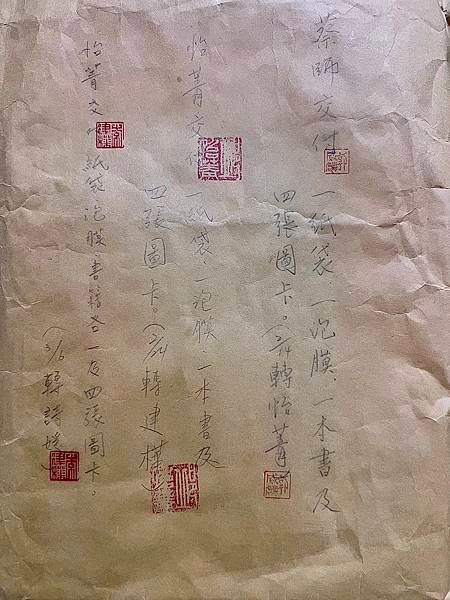 蔡師交付
一紙袋、一泡膜、一本書及
四張圖卡。(轉怡菁)
怡菁交付
一紙袋、一泡膜、一本書及
四張圖卡。(轉建)
怡菁交付紙袋泡膜書籍各一及四張圖卡。
(3/6轉詩媛)